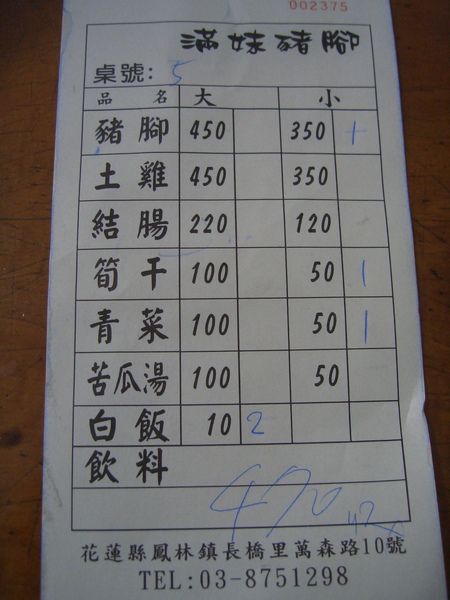 002375
滿妹豬腳
桌號: 5
品名 大 小
豬腳 450 350 1
土雞 450 350
結腸 220 120
筍干 100 50 1
青菜 100 50 1
苦瓜湯 100 50
白飯 10 2
飲料
470
花蓮縣鳳林鎮長橋里萬森路10號
TEL:03-8751298